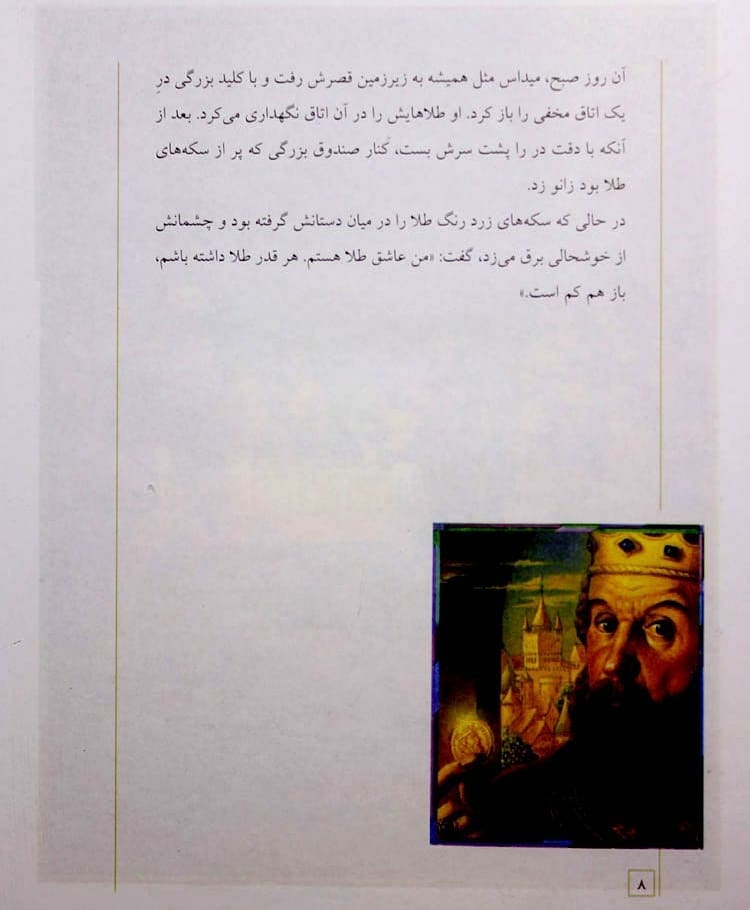 آن روز صبح، میداس مثل همیشه به زیرزمین قصرش رفت و با کلید بزرگی درِ
یک اتاق مخفی را باز کرد. او طلاهایش را در آن اتاق نگهداری می‌کرد. بعد از
آنکه با دقت در را پشت سرش بست، کنار صندوق بزرگی که پر از سکه‌های
طلا بود زانو زد.
در حالی که سکه‌های زرد رنگ طلا را در میان دستانش گرفته بود و چشمانش
از خوشحالی برق می‌زد، گفت: «من عاشق طلا هستم. هر قدر طلا داشته باشم،
باز هم کم است.»
۸